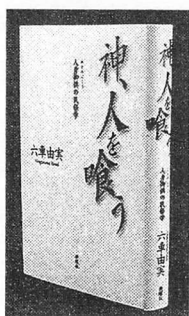 神、人を喰う
人身御供の民俗学
六車由実
神、人を喰う
人身御供の民俗学
六車由実
新曜社